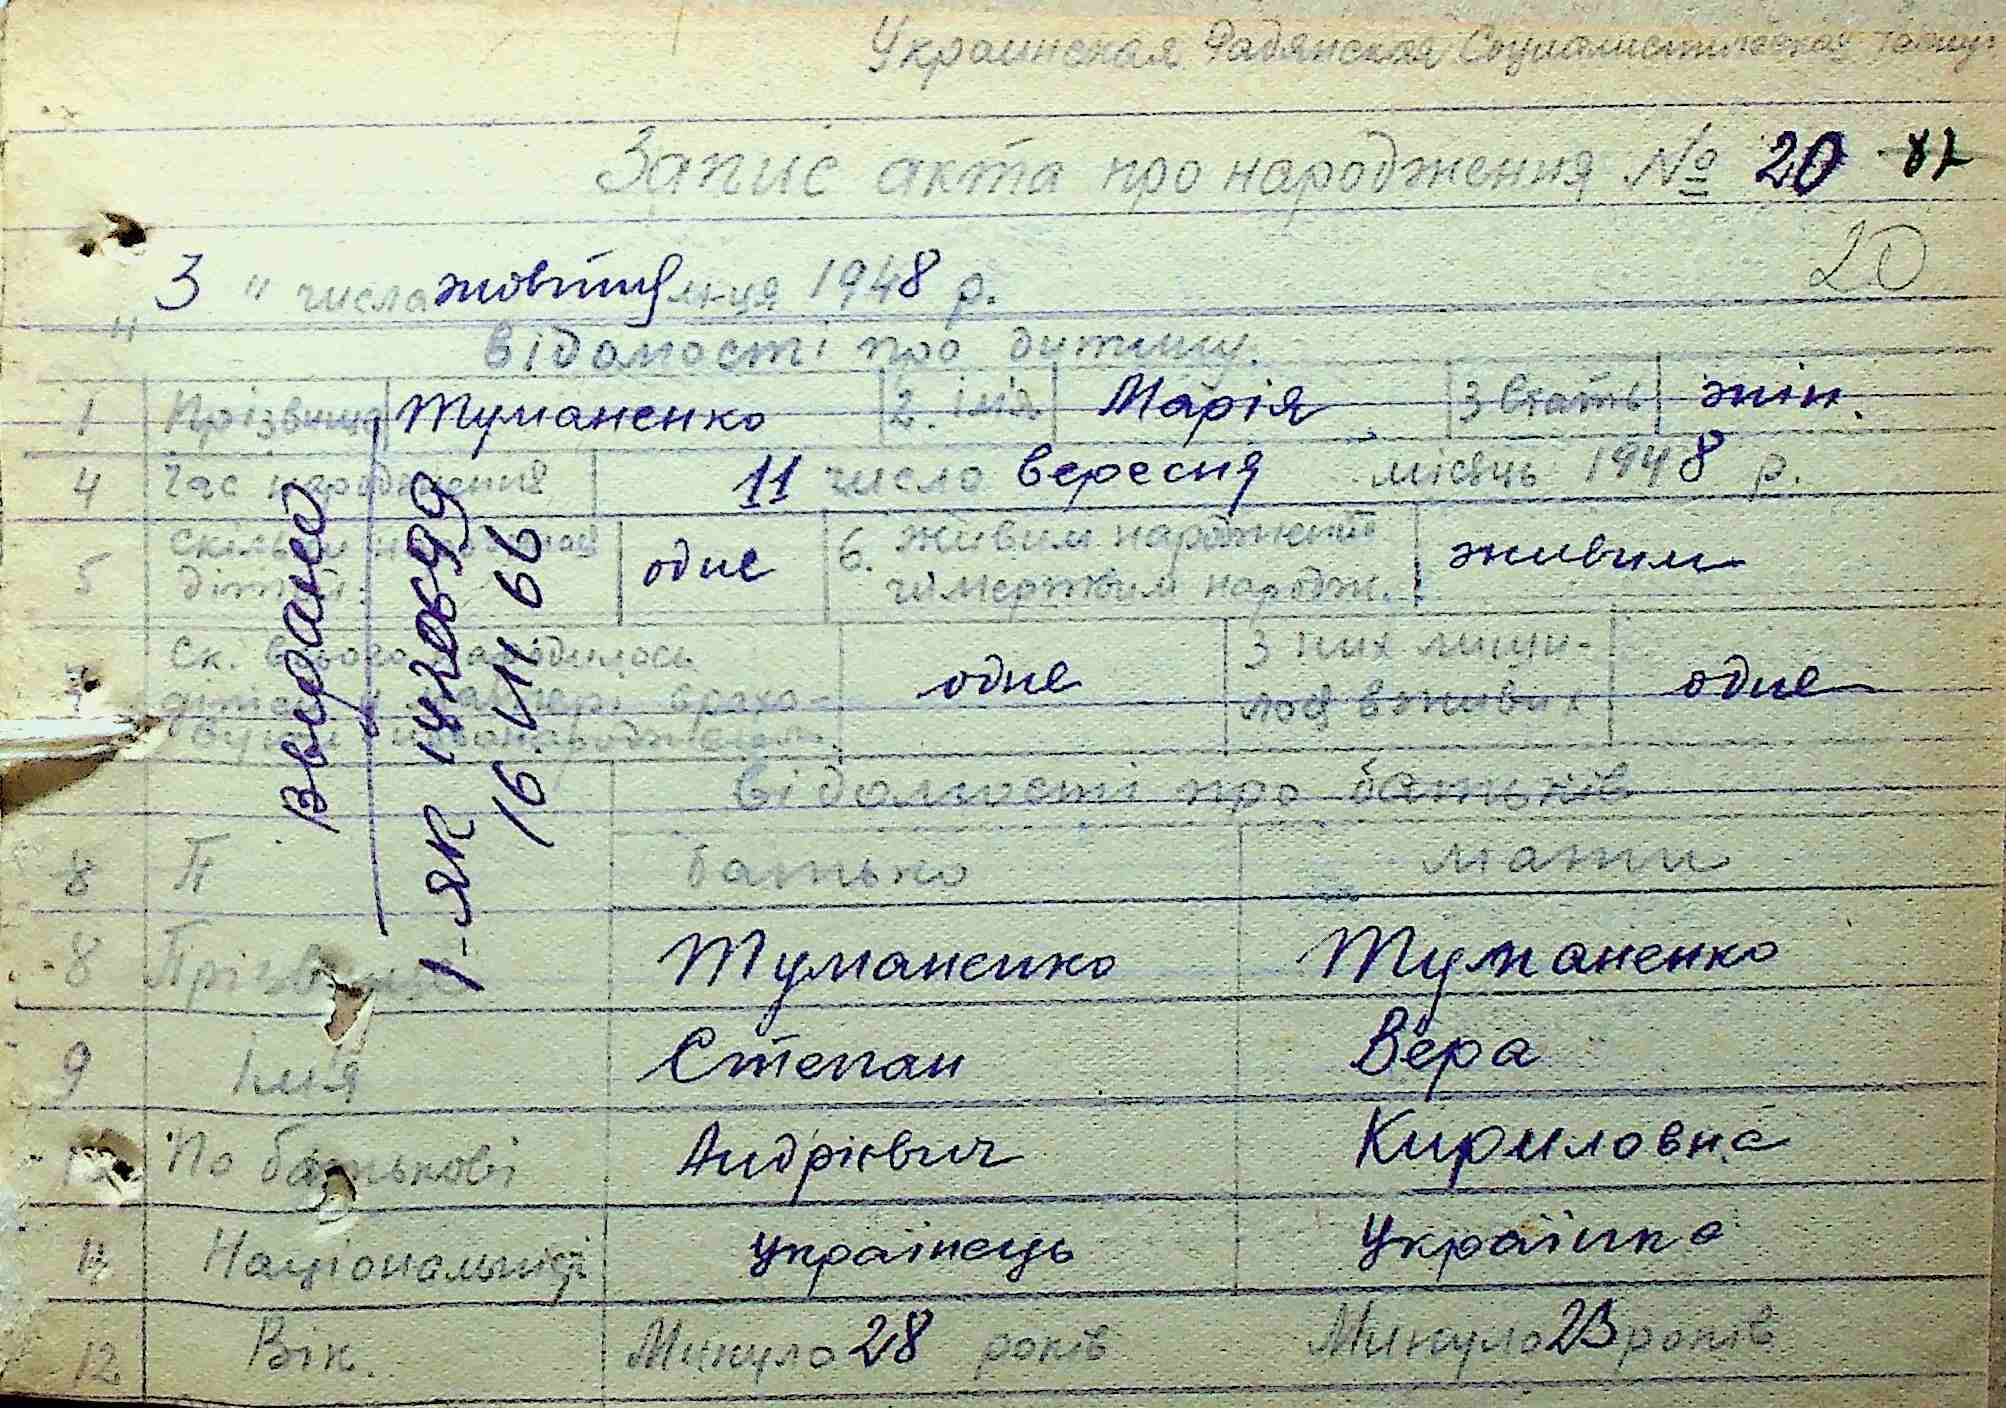 Украинская Радянская Социалистическая
Запис акта про народження № 20
20
3 " числа жовтня м-ця 1948 р.
Відомості про дитину.
1 Прізвище Туманенко 2. ім'я Марія 3 Стать жін.
4 Час народження 11 число вересня місяць 1948 р.
5 Скільки народилось дітей: одне 6. Живим народженої чи мертвим народж. живим
7 Ск. всього народилось дітей у матері врахо-
вуючи одне З них лиши-
лося в живих одне
Видано
1-ЯК 1420699
16 VIII 66
Відомості про батьків
8 П батько мати
8 Прізвище Туманенко Туманенко
9 Ім'я Степан Вера
10 По батькові Андрієвич Кириловна
11 Національність українець Українка
12 Вік. Минуло 28 років Минуло 23 років